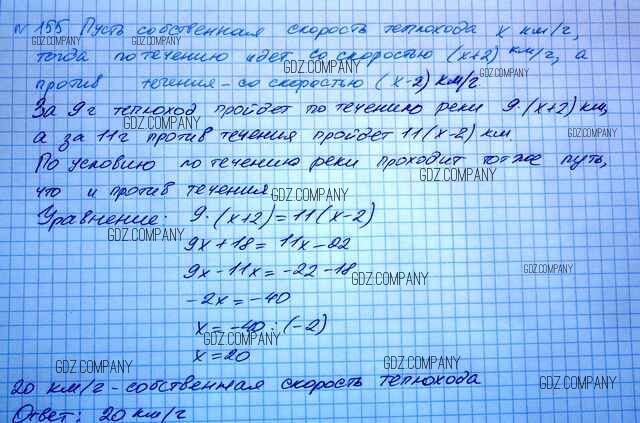 № 155 Пусть собственная скорость теплохода x км/г,
GDZ.COMPANY GDZ.COMPANY
тогда по течению идет со скоростью (x+2) км/г, а
GDZ.COMPANY GDZ.COMPANY
против течения - со скоростью (x-2) км/г.
За 9г теплоход пройдет по течению реки 9·(x+2) км,
GDZ.COMPANY
а за 11г против течения пройдет 11(x-2) км.
GDZ.COMPANY
По условию по течению реки проходит тот же путь,
GDZ.COMPANY
что и против течения
GDZ.COMPANY
Уравнение: 9·(x+2)=11(x-2)
GDZ.COMPANY
9x+18=11x-22
9x-11x=-22-18
GDZ.COMPANY
GDZ.COMPANY
-2x=-40
x=-40:(-2)
GDZ.COMPANY
x=20
GDZ.COMPANY GDZ.COMPANY
20 км/г - собственная скорость теплохода
GDZ.COMPANY
Ответ: 20 км/г